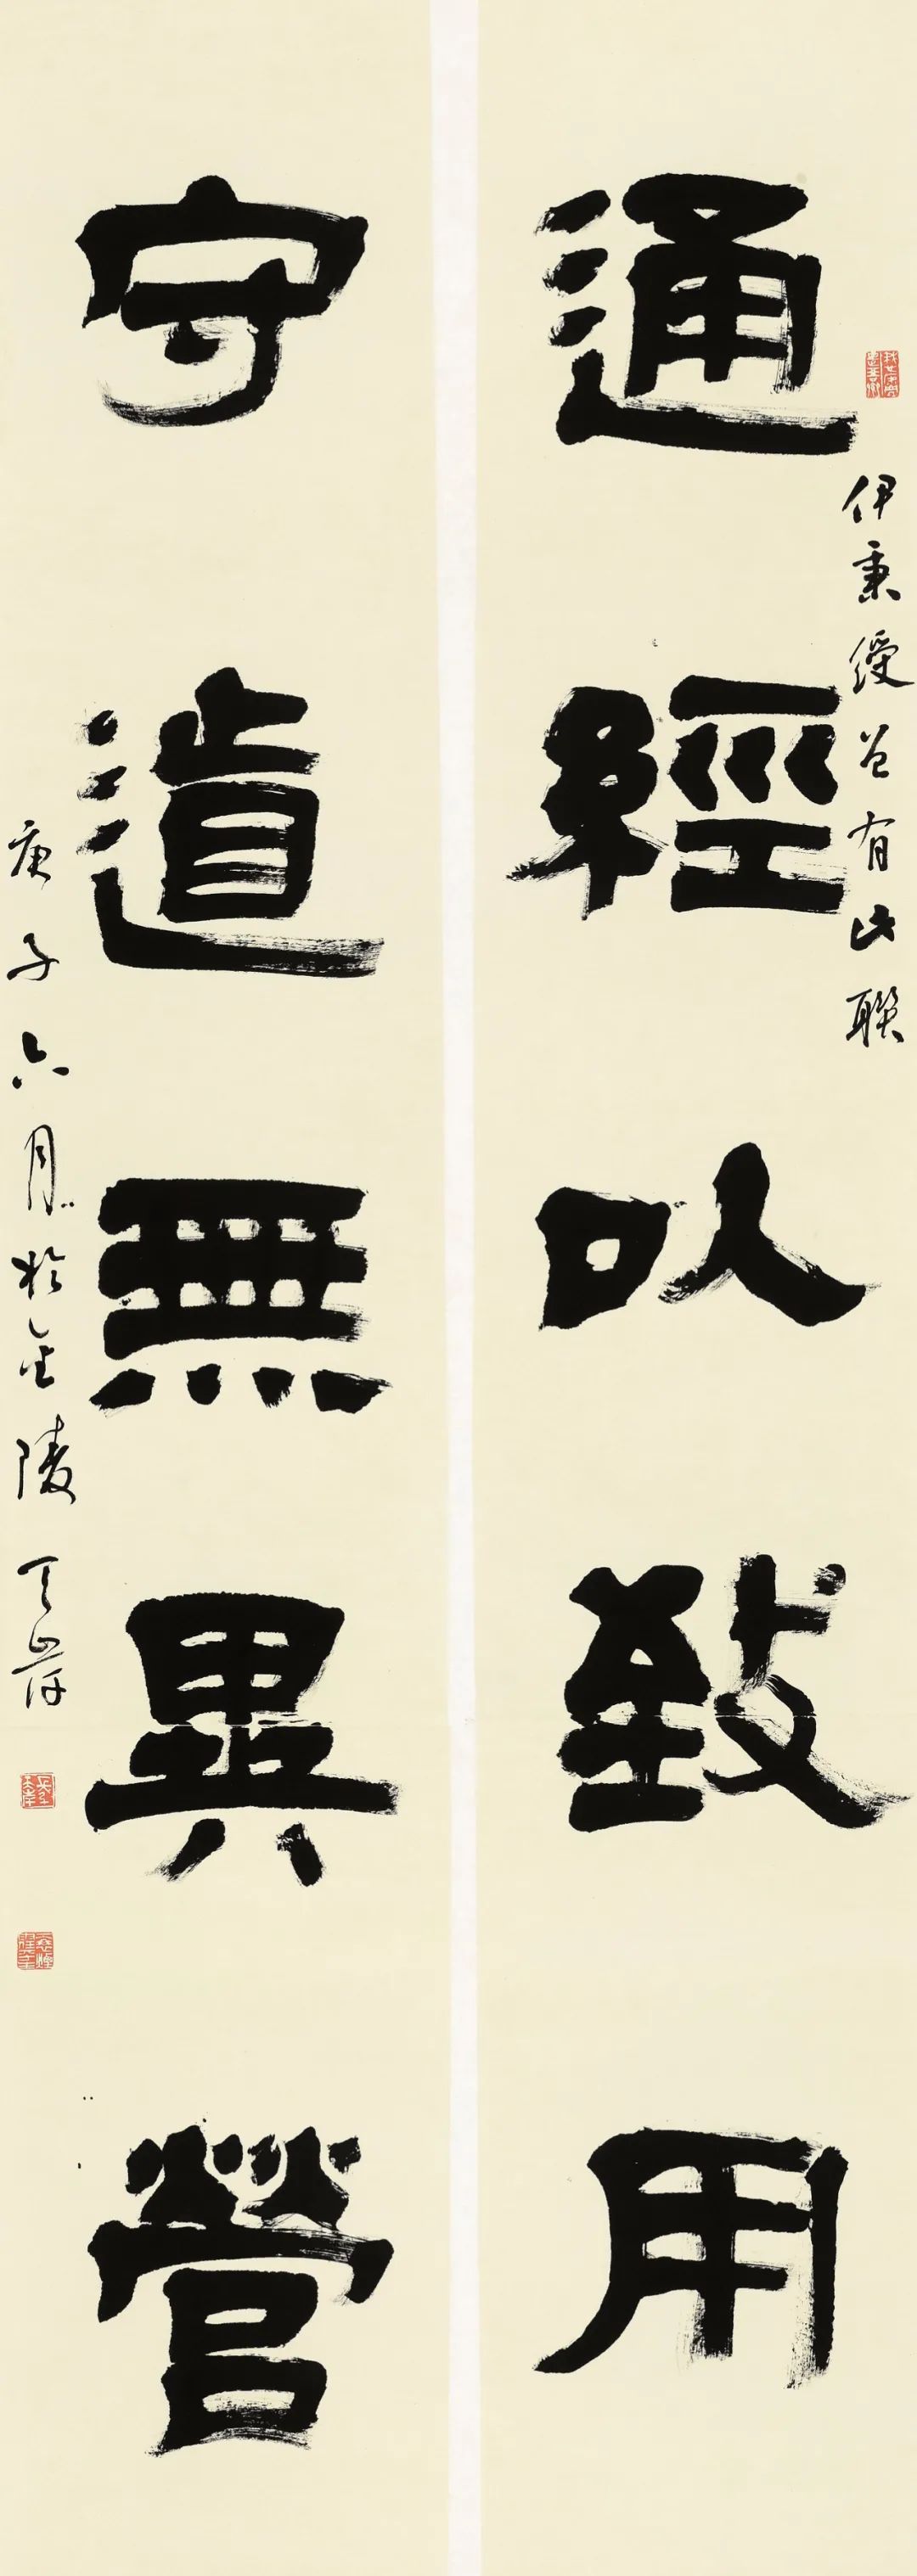 通經以致用
伊秉綬曾有此聯
守道無異營
庚子六月於金陵天岸